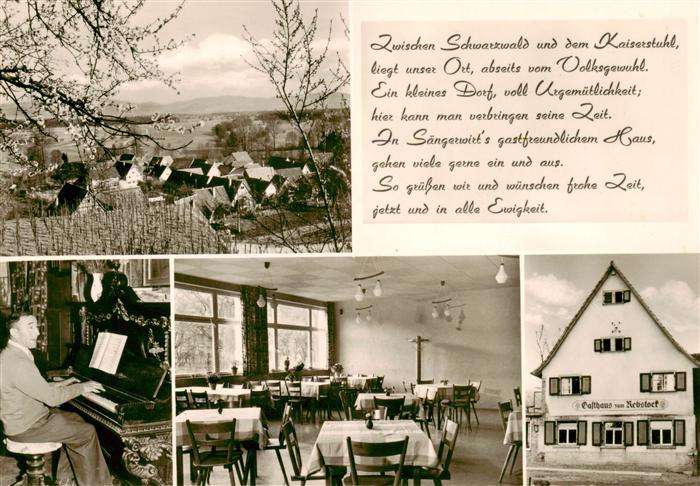 Zwischen Schwarzwald und dem Kaiserstuhl,
liegt unser Ort, abseits vom Volksgewuhl.
Ein kleines Dorf, voll Urgemütlichkeit;
hier kann man verbringen seine Zeit.
In Sängerwirt's gastfreundlichem Haus,
gehen viele gerne ein und aus.
So grüßen wir und wünschen frohe Zeit,
jetzt und in alle Ewigkeit.
Gasthaus zum Rebstock